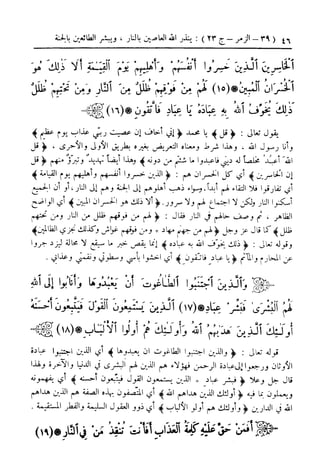 ٤٦ (٣٩ – الزمر – ج ٢٣) : ينذر الله العاصين بالنار ، ويبشر الطائعين بالجنة
الْخَاسِرِينَ الَّذِينَ خَسِرُوا أَنْفُسَهُمْ وَأَهْلِيهِمْ يَوْمَ الْقِيَامَةِ أَلَا ذَلِكَ هُوَ
الْخُسْرَانُ الْمُبِينُ *(١٥) لَهُمْ مِنْ فَوْقِهِمْ ظُلَلٌ مِنَ النَّارِ وَمِنْ تَحْتِهِمْ ظُلَلٌ
ذَلِكَ يُخَوِّفُ اللَّهُ بِهِ عِبَادَهُ يَا عِبَادِ فَاتَّقُونِ *(١٦)
يقول تعالى : ﴿ قل ﴾ يا محمد ﴿ إني أخاف إن عصيت ربي عذاب يوم عظيم ﴾
وأنا رسول الله ، وهذا شرط ومعناه التعريض بغيره بطريق الأولى والأحرى ، ﴿ قل
الله أعبد مخلصاً له ديني فاعبدوا ما شئتم من دونه ﴾ وهذا أيضاً تهديد وتبرؤ منهم ﴿ قل
إن الخاسرين ﴾ أي كل الخسران هم : ﴿ الذين خسروا أنفسهم وأهليهم يوم القيامة ﴾
أي تفارقوا فلا التقاء لهم أبداً، وسواء ذهب أهلوهم إلى الجنة وهم إلى النار، أو أن الجميع
أسكنوا النار ولكن لا اجتماع لهم ولا سرور. ﴿ ألا ذلك هو الخسران المبين ﴾ أي الواضح
الظاهر ، ثم وصف حالهم في النار فقال : ﴿ لهم من فوقهم ظلل من النار ومن تحتهم
ظلل ﴾ كما قال عز وجل ﴿ لهم من جهنم مهاد ، ومن فوقهم غواش وكذلك نجزي الظالمين ﴾
وقوله تعالى : ﴿ ذلك يخوف الله به عباده ﴾ إنما يقص خبر ما سيقع لا محالة ليزدجروا
عن المحارم والمآثم ﴿ يا عباد فاتقون ﴾ أي اخشوا بأسي وسطوتي ونقمتي وعذابي .
وَالَّذِينَ اجْتَنَبُوا الطَّاغُوتَ أَنْ يَعْبُدُوهَا وَأَنَابُوا إِلَى اللَّهِ
لَهُمُ الْبُشْرَى فَبَشِّرْ عِبَادِ *(١٧) الَّذِينَ يَسْتَمِعُونَ الْقَوْلَ فَيَتَّبِعُونَ أَحْسَنَهُ
أُولَئِكَ الَّذِينَ هَدَاهُمُ اللَّهُ وَأُولَئِكَ هُمْ أُولُو الْأَلْبَابِ *(١٨)
قوله تعالى : ﴿ والذين اجتنبوا الطاغوت ان يعبدوها ﴾ أي الذين اجتنبوا عبادة
الأوثان ورجعوا إلى عبادة الرحمن فهؤلاء هم الذين لهم البشرى في الدنيا والآخرة ولهذا
قال جل وعلا ﴿ فبشر عباد . الذين يستمعون القول فيتبعون أحسنه ﴾ أي يفهمونه
ويعملون بما فيه ﴿ أولئك الذين هداهم الله ﴾ أي المتصفون بهذه الصفة هم الذين هداهم
الله في الدارين ﴿ وأولئك هم أولو الألباب ﴾ أي ذوو العقول السليمة والفطر المستقيمة .
أَفَمَنْ حَقَّ عَلَيْهِ كَلِمَةُ الْعَذَابِ أَفَأَنْتَ تُنْقِذُ مَنْ فِي النَّارِ *(١٩)